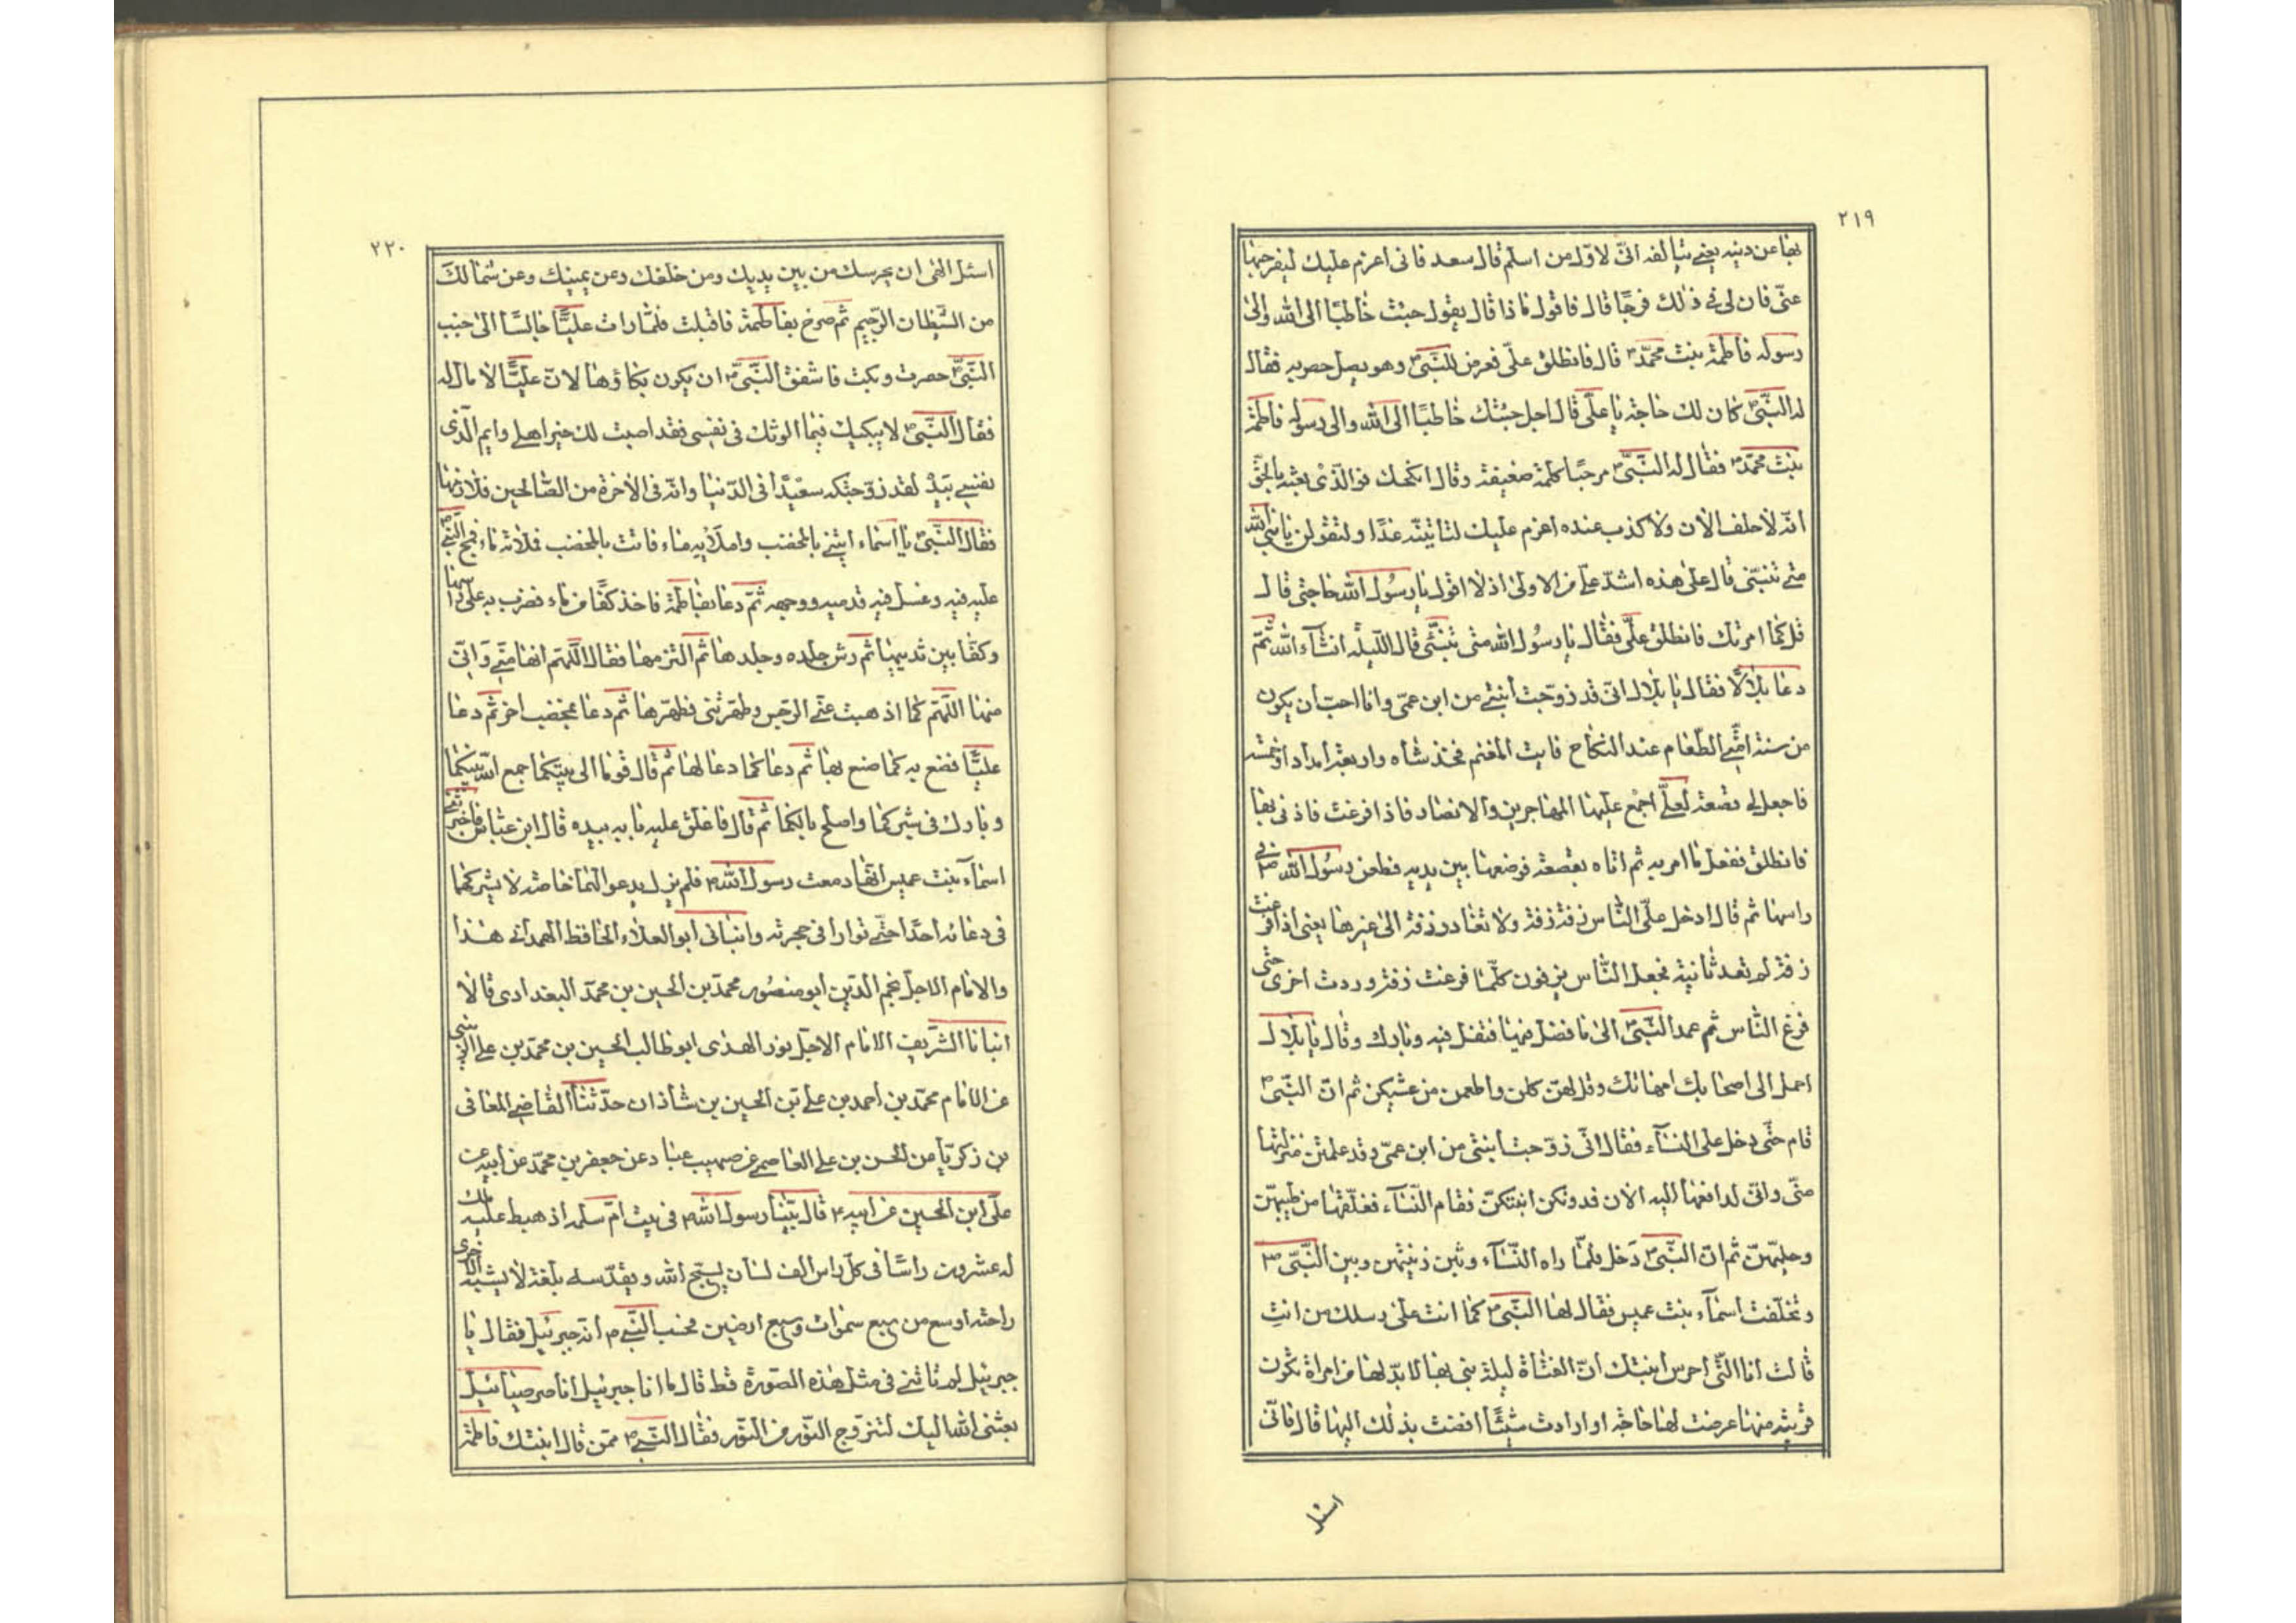 ٢١٩
بها عن دينه يعني يتالفه انّى لاوّل من اسلم قال سعد فانى اعزم عليك ليفرجها
عنّى فان لى فى ذلك فرجًا قال فاقول ماذا قال يقول جئت خاطبًا الى الله والى
رسوله فاطمة بنت محمّد ص قال فانطلق علىّ فعرض للنّبىّ ص وهو يصل حصر به فقال
له النّبىّ ص كان لك حاجة يا علىّ قال اجل جئتك خاطبًا الى الله والى رسوله فاطمة
بنت محمّد ص فقال له النّبىّ ص مرحبًا كلمة ضعيفة وقال انكحك فو الّذى بعثه بالحقّ
انّه لاخلف الان ولا كذب عنده اعزم عليك لتاتينّه غدًا ولتقولن يا نبى الله
متى تبنينى قال على هذه اشدّ على من الاولى اذ لا اقول يا رسول الله حاجتى قال
قل كما امرتك فانطلق علىّ فقال يا رسول الله متى تبنينى قال اللّيلة انشاء الله ثمّ
دعا بلالًا فقال يا بلال انّى قد زوّجت ابنتى من ابن عمّى وانا احبّ ان يكون
من سنة امّتى الطّعام عند النكاح فايت المغنم فخذ شاه واربعة امداد او خمسة
فاجعل لى قصعة لعلّى اجمع عليها المهاجرين والانصار فاذا فرغت فاذنى بها
فانطلق ففعل ما امر به ثم اتاه بقصعة فوضعها بين يديه فطعن رسول الله ص فى
راسها ثم قال ادخل علىّ النّاس زفة زفة ولا تغادر زفة الى غيرها يعنى اذا فرغت
زفة لم تعد ثانية فجعل النّاس يزفون كلّما فرغت زفة وردت اخرى حتّى
فرغ النّاس ثم عمد النّبىّ ص الى ما فضل منها فتفل فيه وبارك وقال يا بلال
احمل الى اصحابك امهاتك وقل لهنّ كلن واطعمن من عشيكن ثم انّ النّبىّ ص
قام حتّى دخل على النساء فقال انّى زوّجت ابنتى من ابن عمّى وقد علمتن منزلتها
منّى وانّى لدافعها اليه الان فدونكن ابنتكنّ فقام النّساء فغلّفنها من طيبهنّ
وحليهنّ ثم انّ النّبىّ ص دخل فلمّا راه النّساء وثبن زينتهن وبين النّبىّ ص
وتخلّفت اسماء بنت عميس فقال لها النّبىّ ص كما انت على رسلك من انتِ
قالت انا الّتى احرس ابنتك انّ الفتاة ليلة بنى بها لا بدّ لها من امراة تكون
قريبة منها عرضت لها حاجة او ارادت شيئًا افضت بذلك اليها قال فانّى
اسئل
٢٢٠
اسئل الهى ان يحرسك من بين يديك ومن خلفك وعن يمينك وعن شمالك
من الشّيطان الرّجيم ثم صرخ بفاطمة فاقبلت فلمّا رات عليًّا جالسًا الى جنب
النّبىّ ص حصرت وبكت فاشفق النّبىّ ص ان يكون بكاؤها لانّ عليًّا لا مال له
فقال النّبىّ ص لا يبكيك فما الوتك فى نفسى فقد اصبت لك خير اهلى وايم الّذى
نفسى بيده لقد زوّجتكه سعيدًا فى الدّنيا وانّه فى الاخرة من الصّالحين فلازمها
فقال النّبىّ ص يا اسماء ايتنى بالمخضب واملايه ماء فاتت بالمخضب فملاته ماء فمج النّبىّ ص
عليه فيه وغسل فيه قدميه ووجهه ثمّ دعا بفاطمة فاخذ كفًّا من ماء فضرب به على راسها
وكفًّا بين ثدييها ثم رش جلده وجلدها ثم التزمها فقال اللّهمّ انها منّى وانّى
منها اللّهمّ كما اذهبت عنّى الرّجس وطهّرتنى فطهّرها ثم دعا بمخضب اخر ثم دعا
عليًّا فصنع به كما صنع بها ثم دعا كما دعا لها ثم قال قوما الى بيتكما جمع الله بينكما
وبارك فى سيركما واصلح بالكما ثم قال فاغلق عليه بابه بيده قال ابن عبّاس فاخبرتنى
اسماء بنت عميس انّها رمعت رسول الله ص فلم يزل يدعو الهما خاصة لا يشركهما
فى دعائه احدًا حتّى توارا فى حجرته وانبانى ابو العلاء الحافظ الهمدانى هذا
والامام الاجلّ نجم الدّين ابو منصور محمّد بن الحسين بن محمّد البغدادى قالا
انبانا الشّريف الامام الاجلّ نور الهدى ابو طالب الحسين بن محمّد بن على الزينبى
عن الامام محمّد بن احمد بن على بن الحسين بن شاذان حدّثنا القاضى المعافى
بن زكريّا من الحسن بن على العاصمى عن صهيب عباد عن جعفر بن محمّد عن ابيه عن
علىّ ابن الحسين عن ابيه ع قال بينا رسول الله ص فى بيت امّ سلمه اذ هبط عليه ملك
له عشرون راسًا فى كلّ راس الف لسان يسبّح الله ويقدّسه بلغة لا يشبه الاخرى
راحته اوسع من سبع سموات وسبع ارضين فحسب النّبىّ ص انّه جبرئيل فقال يا
جبرئيل لم تاتنى فى مثل هذه الصّورة قط قال ما انا جبرئيل انا صرصيائيل
بعثنى الله اليك لتزوّج النّور من النّور فقال النّبىّ ص ممّن قال ابنتك فاطمة